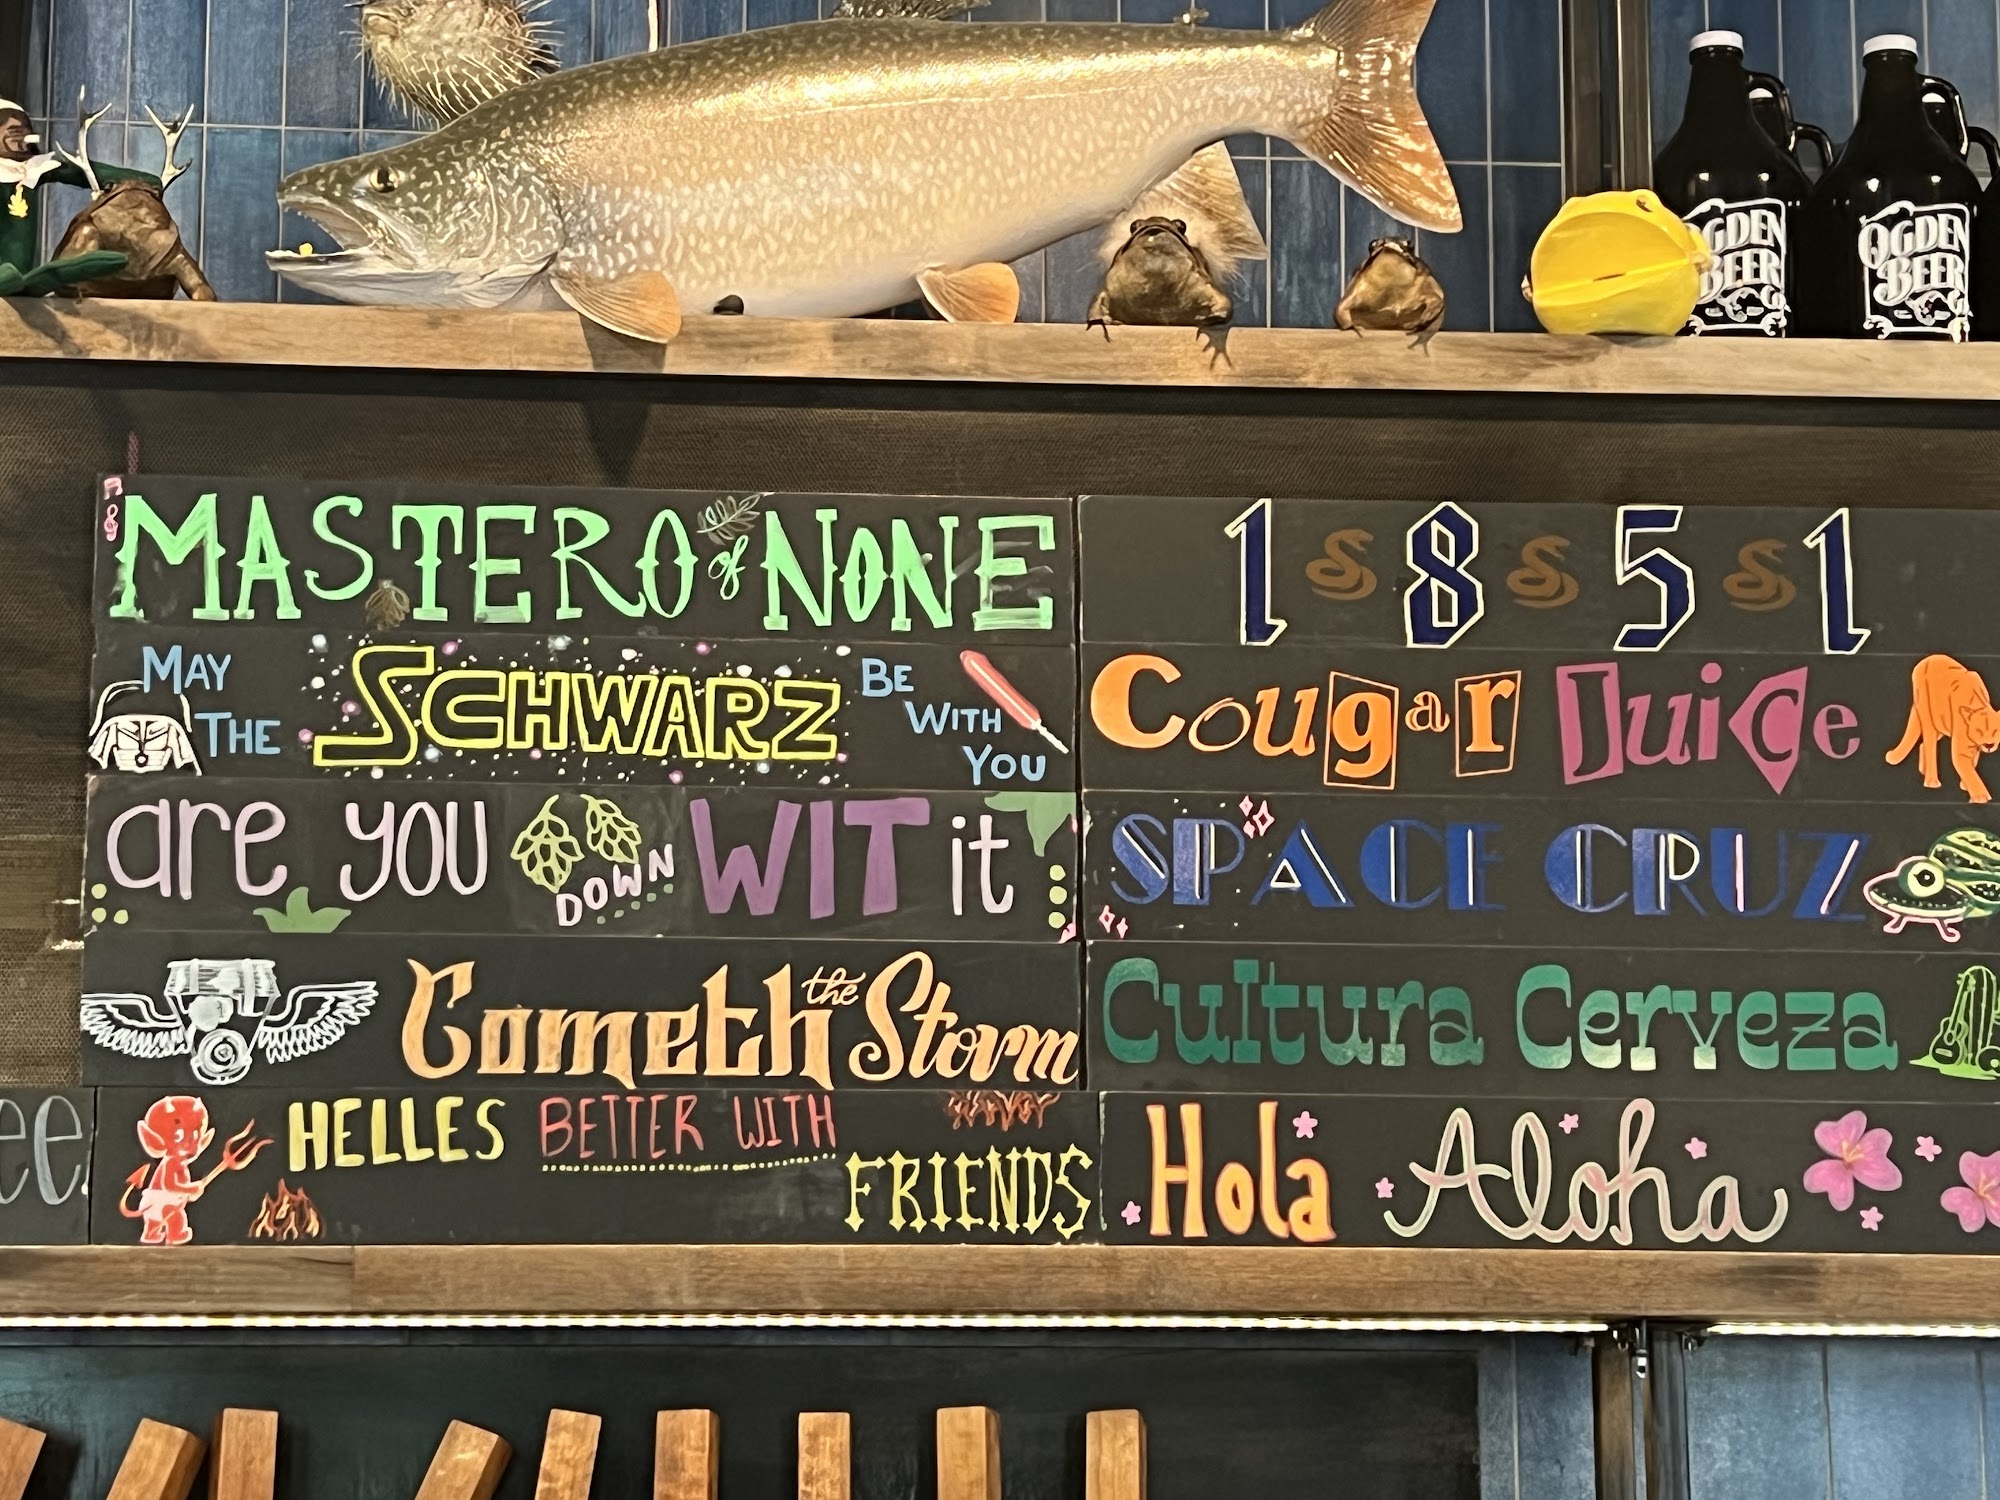 OGDEN
BEER
OGDEN
BEER
MASTERO of NONE
MAY THE SCHWARZ BE WITH YOU
are you DOWN WIT it
Cometh the Storm
HELLES BETTER WITH FRIENDS
1851
Cougar Juice
SPACE CRUZ
Cultura Cerveza
Hola Aloha